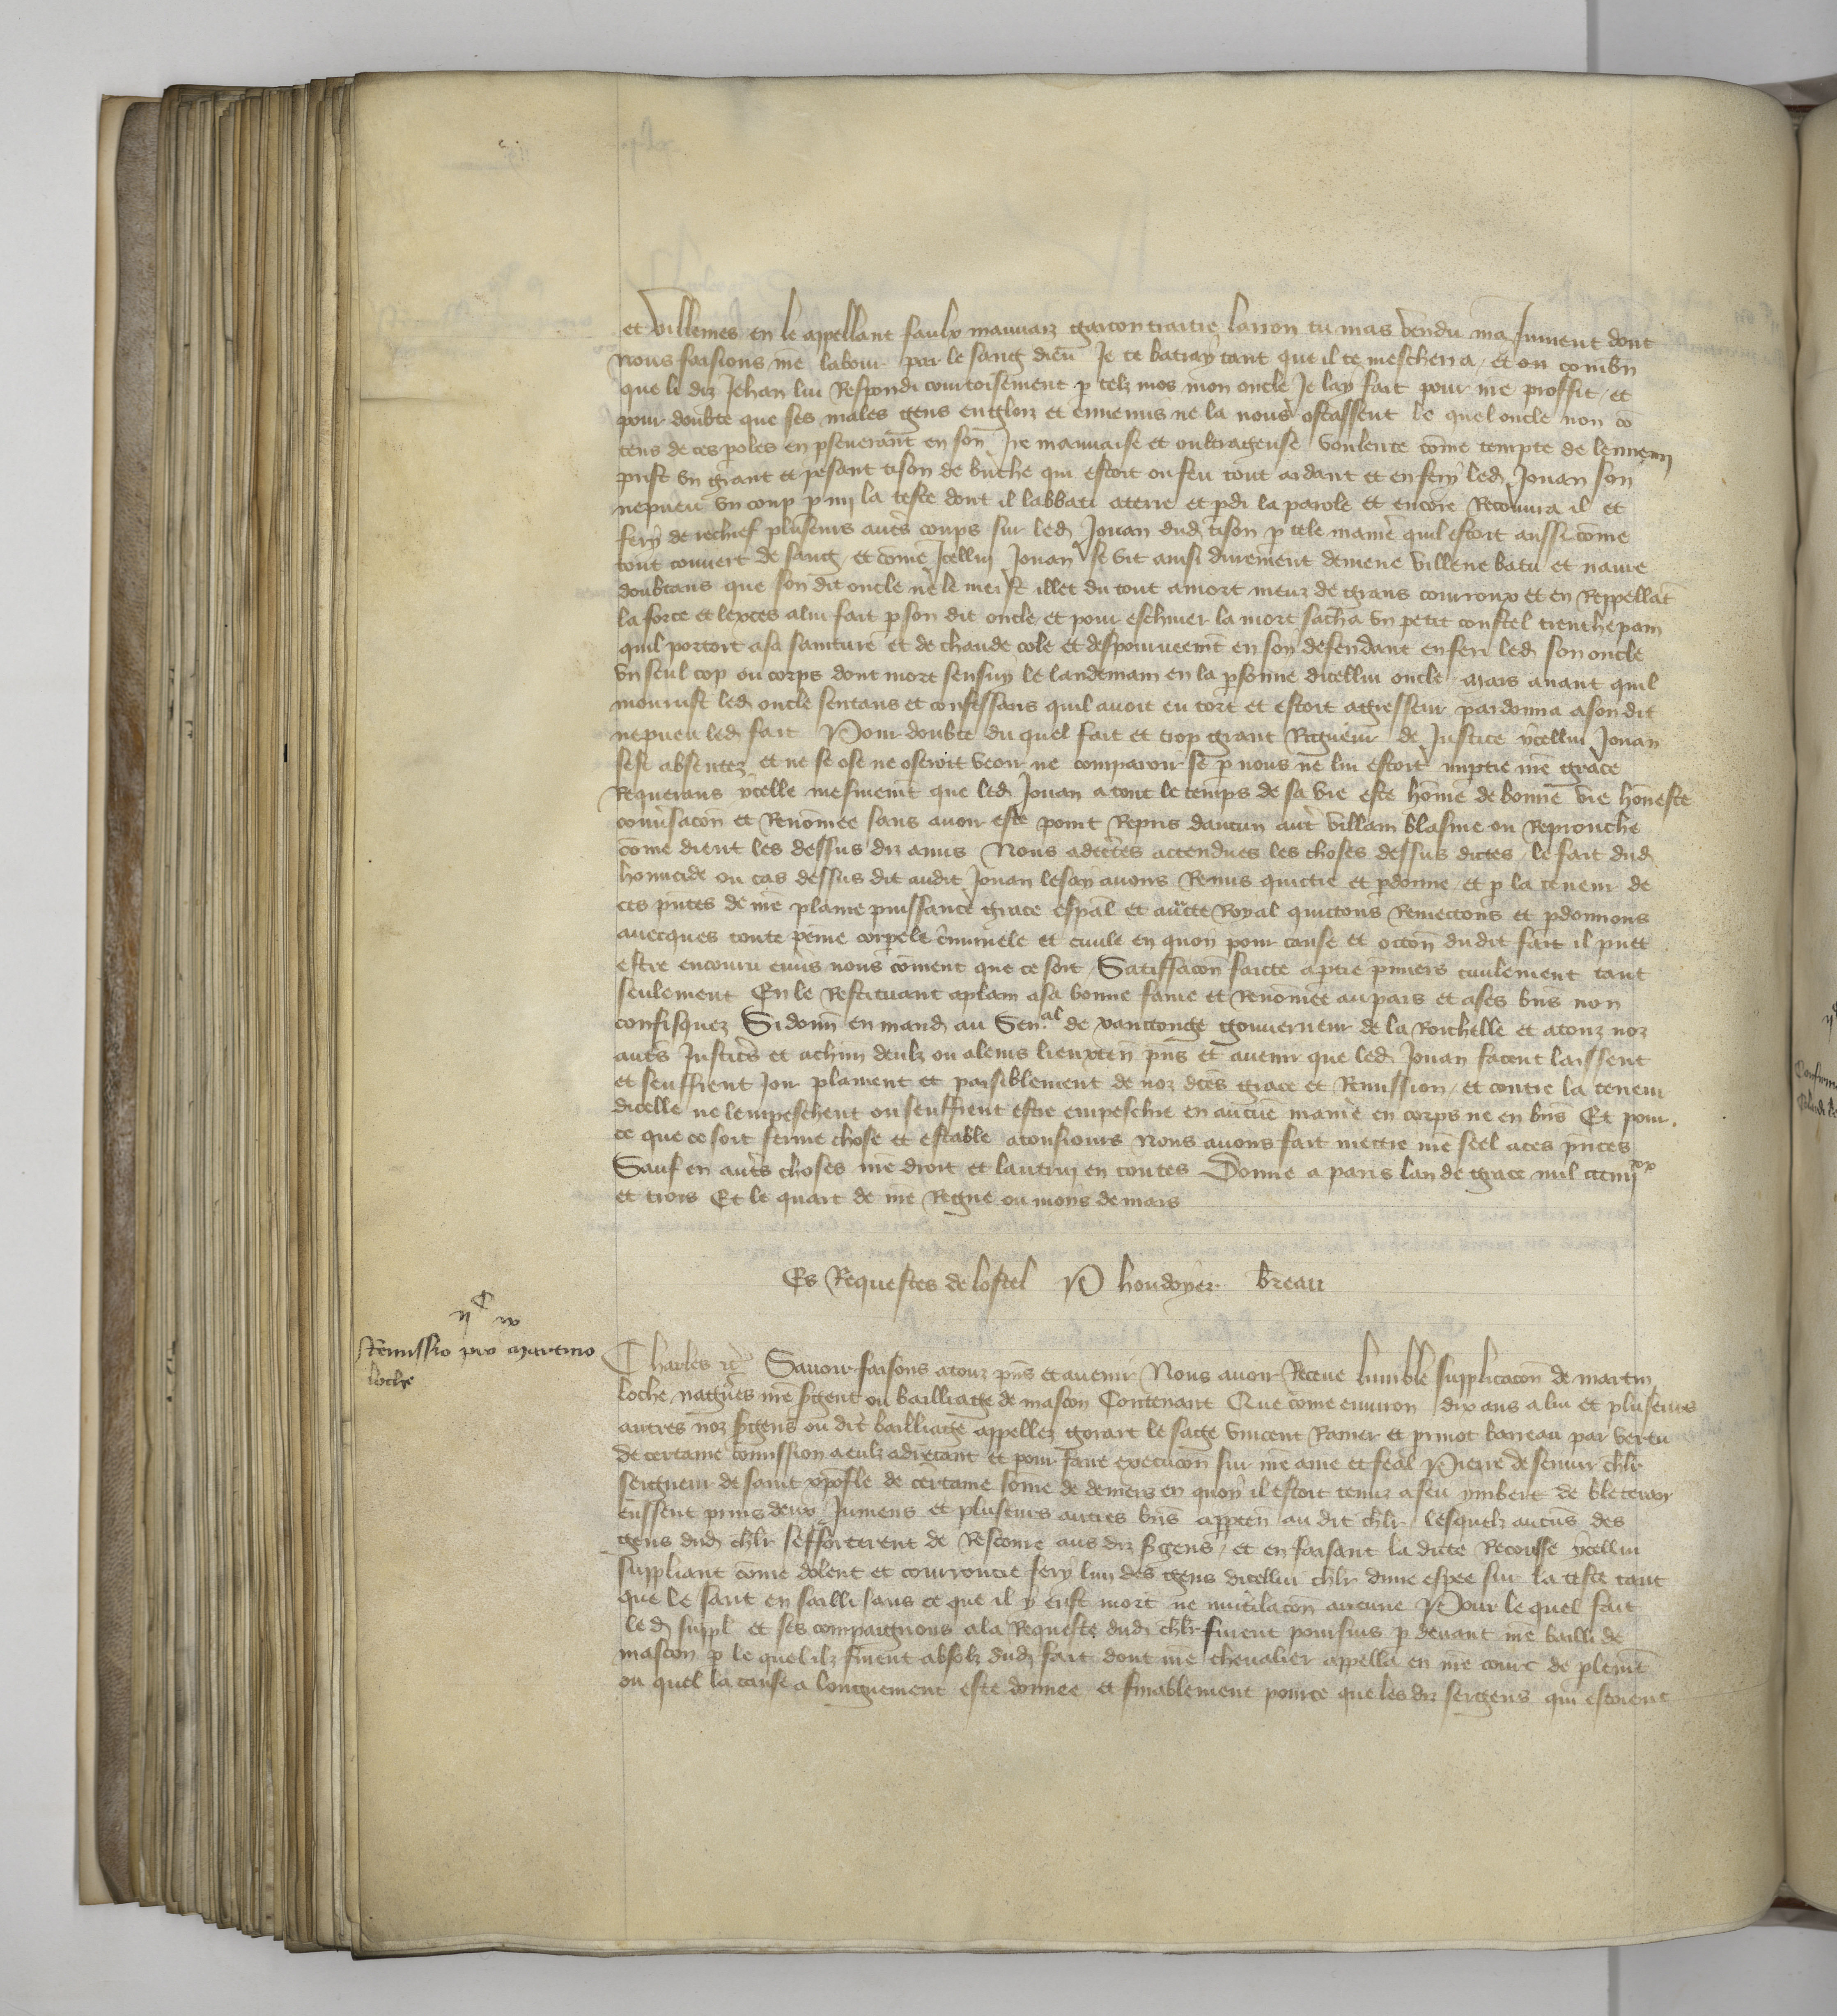 et villenies en le appellant faulx mauvaiz garcon traitre larron tu mas vendu ma Jument dont
nous faisions nre̅ labour par le sang dieu Je te batray tant que il te mescherra / et on co̅mbn̅
que li diz Jehan lui Respondi courtoisement p telz mos mon oncle Je lay fait pour nre̅ proffit / et
pour doubte que ses males gens engloiz et ennemis ne la nous ostassent le quel oncle non co̅
tens de ces poles en pseverant en son Ire mauvaise et oultrageuse voulente co̅me tempte de lennemy
prist un grant et pesant tison de buche qui estoit ou feu tout ardant et en fery led Jouan son
nepveu un coup pmy la teste dont il labbati aterre et pdi la parole et encore Recouvra il et
fery de rechief plusieurs autrs̅ coups sur led Jouan dud tison p tele manie̅ quil estoit aussi co̅me
tout couvert de sang / et co̅me Icellui Jouan se vit ainsi durement demene villene batu et navre
doubtans que son dit oncle ne le meist illec du tout amort meuz de grans courroux et en Reppellat̅
la force et lexces alui fait p son dit oncle et pour eschiver la mort sacha un petit coustel trenchepain
quil portoit asa sainture et de chaude cole et despourveemt̅ en son defendant en feri led son oncle
un seul cop ou corps dont mort sensuy le landemain en la psonne dicellui oncle mais avant quil
mourust led oncle sentans et confessans quil avoit eu tort et estoit agresseur pardonna ason dit
nepveu led fait Pour doubte du quel fait et trop grant Rigueur de Justice ycellui Jouan
sest absentez et ne se ose ne oseroit veoir ne comparoir se p nous ne lui estoit imptie nre̅ grace
Requerans ycelle mesmemt̅ que led Jouan a tout le temps de sa vie este ho̅me de bonne vie honneste
conv̅sacon̅ et Reno̅mee sans avoir este point Repris daucun autr̅ villain blasme ou Reprouche
co̅me dient les dessus diz amis Nous adcertes̅ attendues les choses dessus dictes / le fait dud
homicide ou cas dessus dit audit Jouan lesay avons Remis quictie et pdonne / et p la teneur de
ces pn̅tes de nre̅ plaine puissance grace espal̅ et aucte̅ Royal quictons Remectons et pdonnons
avecques toute peine corpele̅ crimine̅le et civile en quoy pour cause et occon̅ du dit fait il puet
estre encouru envs̅ nous co̅ment que ce soit / Satisfacon̅ faicte aptie pmiers civilement tant
seulement En le Restituant aplain asa bonne fame et Reno̅mee au pais et ases bns̅ non
confisquez Si donn̅ en mand au Sen.al de Xanctonge gouverneur de la Rochelle et atouz noz
autrs̅ Justicrs̅ et achun deulz ou aleurs lieuxten̅ pns̅ et avenir que led Jouan facent laissent
et seuffrent Joir plainent et paisiblement de noz dces̅ grace et Remission / et contre la teneur
dicelle ne lempeschent ou seuffrent estre empeschie en aucune̅ manie̅ en corps ne en bns̅ Et pour
ce que ce soit ferme chose et estable atousiours Nous avons fait mectre nre̅ seel aces pn̅tes
Sauf en autrs̅ choses nre̅ droit et lautruy en toutes Donne a paris lan de grace mil ccciiijxx
et trois Et le quart de nre̅ Regne ou mois de mars
Es Requestes de lostel P houdoyer breau
ijC iv
Remissio pro Martino
loche
Charles etc̅ Savoir faisons atouz pns̅ et avenir Nous avoir Receue lumble supplicacon̅ de martin
loche, nagueres̅ nre̅ sgent ou bailliage de mascon Contenant Que co̅me environ dix ans alui et plusieurs
autres noz sgens ou dit bailliage appellez gorart le sage vincent Ramer et prinot barreau par vertu
de certaine co̅mission aeulz adrecant et pour faire execucon̅ sur nre̅ ame et feal Pierre de semur chlr̅
seigneur de saint xpofle de certaine so̅me de deniers en quoy il estoit tenuz afeu ymbert de bleterans
eussent prins deux Jumens et plusieurs autres bns̅ apprten̅ au dit chlr̅ lesquelz aucuns des
gens dud chlr̅ sefforcerent de Rescourre aus diz sgens / et en faisant la dicte Recousse ycellui
suppliant co̅me dolent et courroucie fery lun des gens dicellui chlr̅ dune espee sur la teste tant
que le sanc en sailli sans ce que il y eust mort ne mutilacon̅ aucune Pour le quel fait
led suppl̅ et ses compaignons ala Requeste dud chlr̅ furent poursuis p devant nre̅ bailli de
mascon p le quel ilz furent absolz dud fait dont nre̅ chevalier appella en nre̅ court de plemt̅
ou quel la cause a longuement este demenee et finablement pource que les diz sergens qui estoient